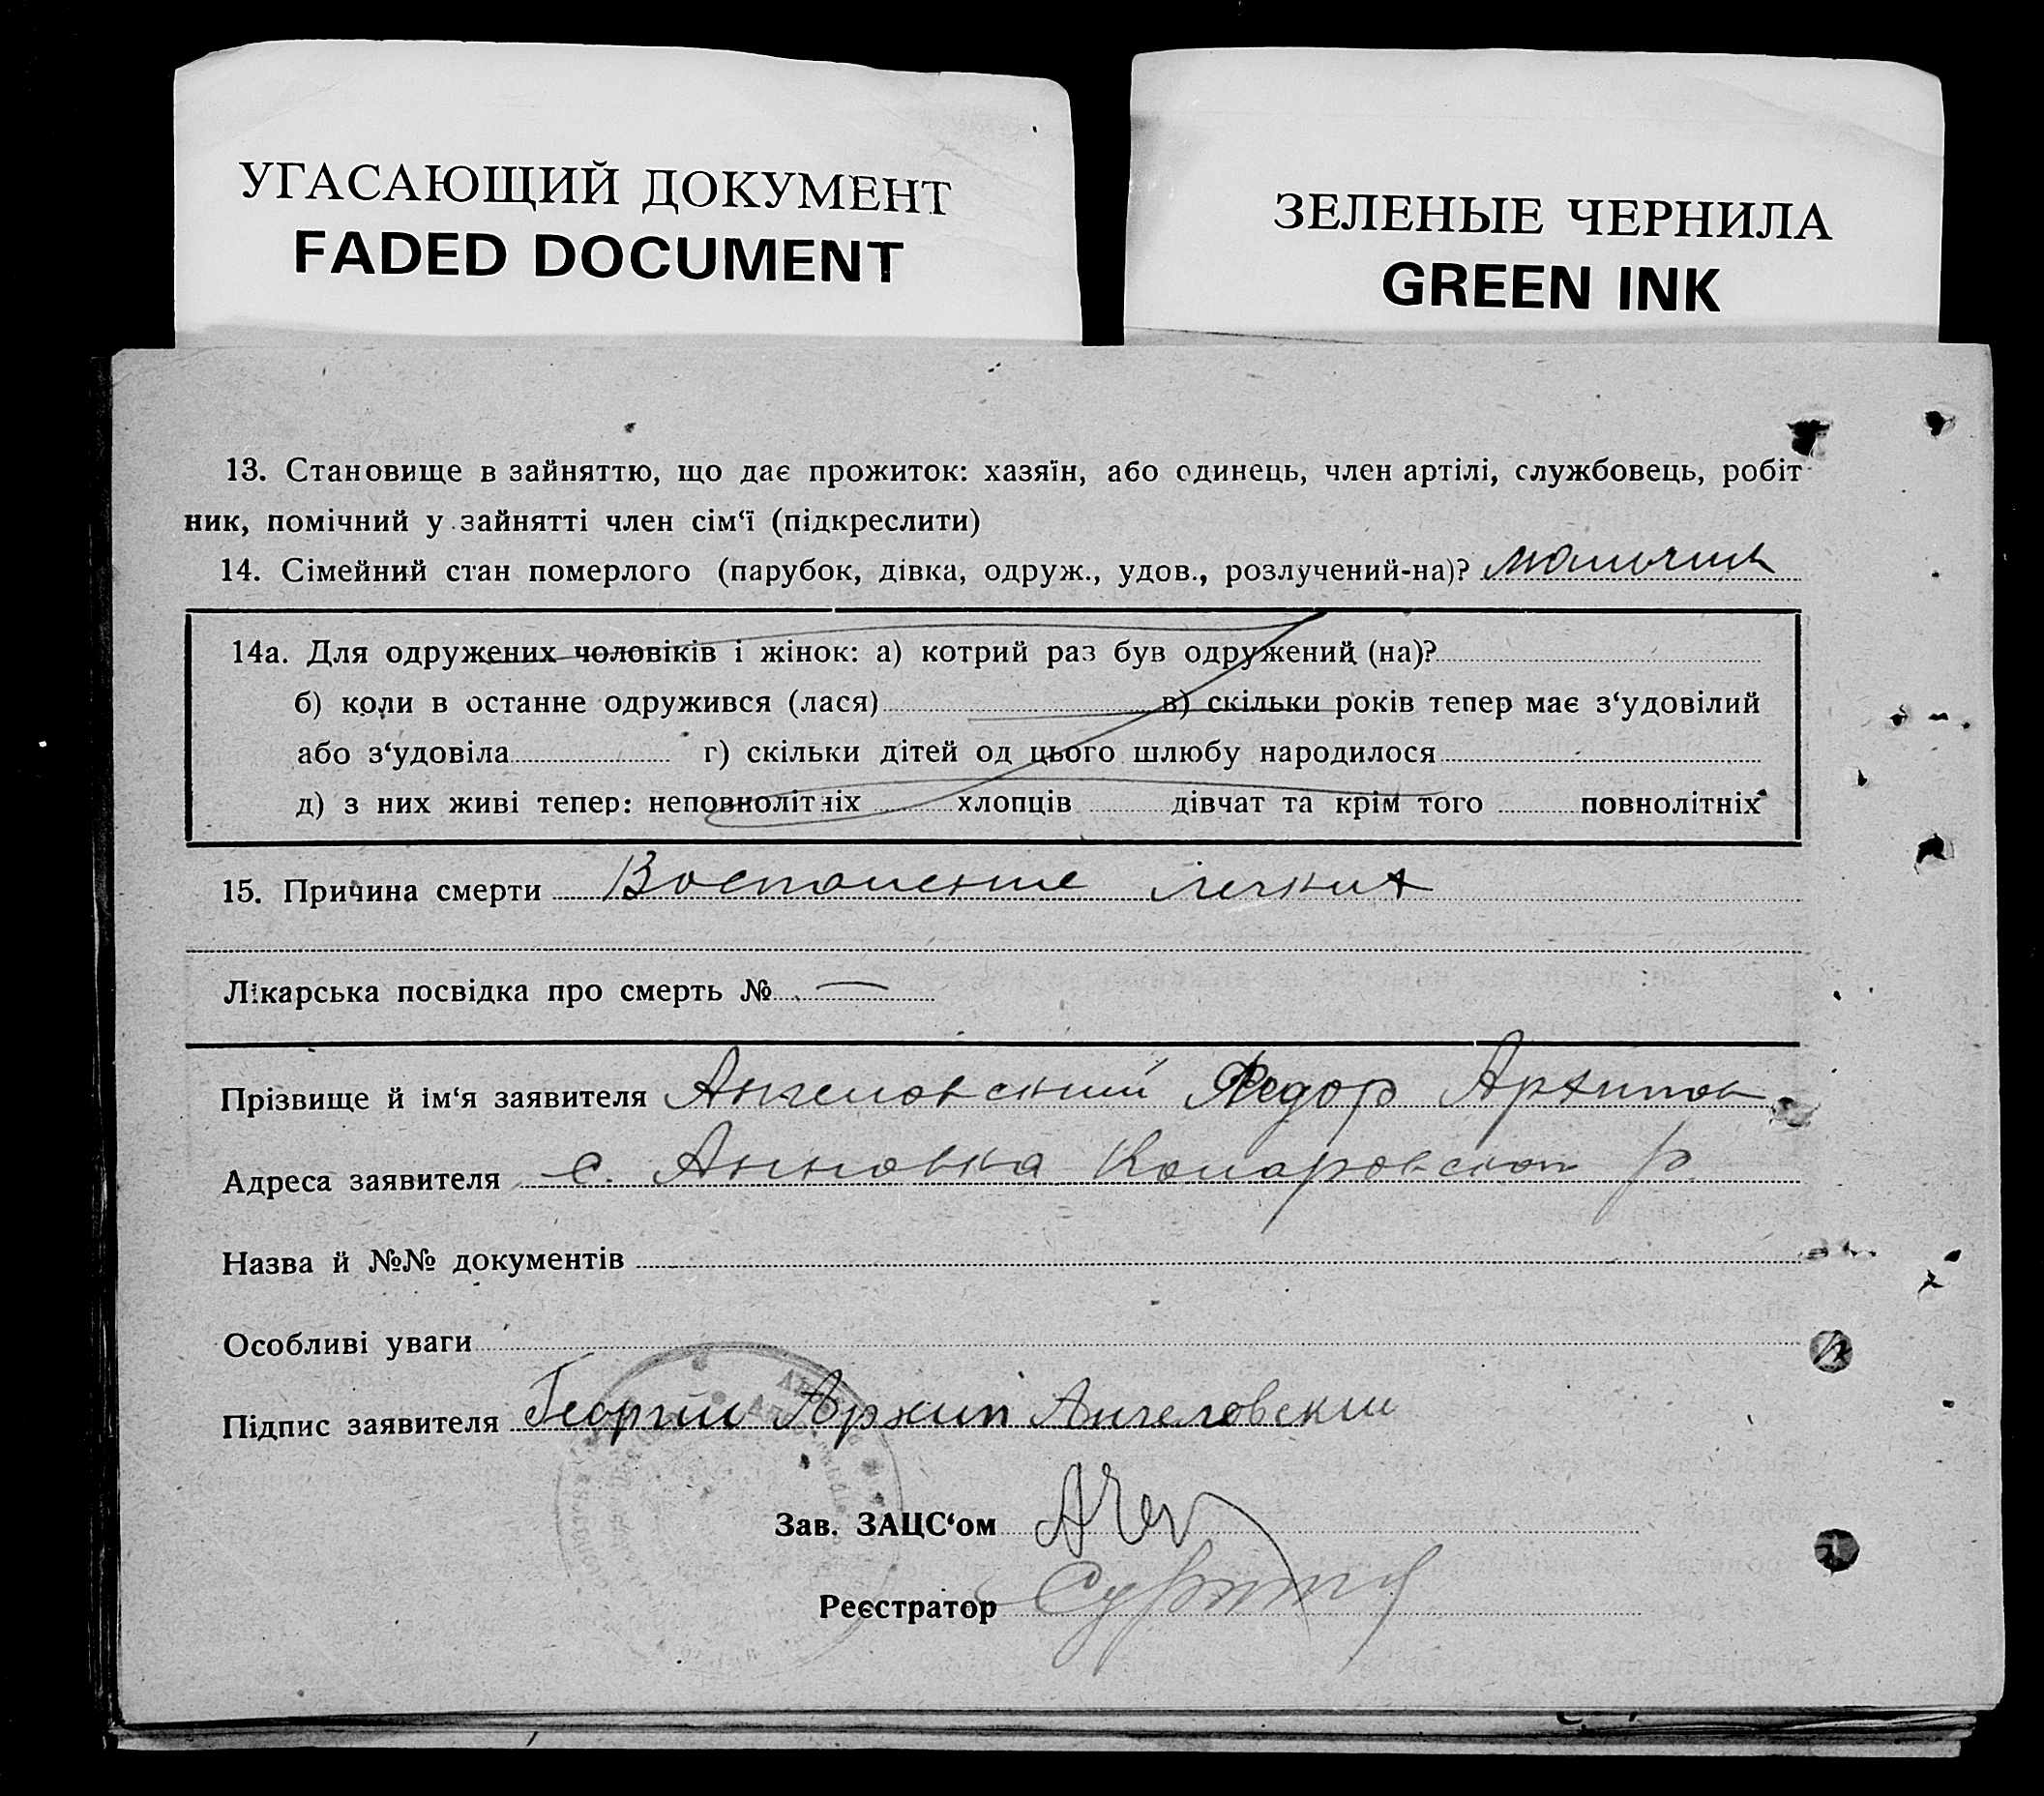 УГАСАЮЩИЙ ДОКУМЕНТ
FADED DOCUMENT
ЗЕЛЕНЫЕ ЧЕРНИЛА
GREEN INK
13. Становище в зайняттю, що дає прожиток: хазяїн, або одинець, член артілі, службовець, робіт-
ник, помічний у зайнятті член сім‘ї (підкреслити)
14. Сімейний стан померлого (парубок, дівка, одруж., удов., розлучений-на)? мальчик
14а. Для одружених чоловіків і жінок: а) котрий раз був одружений (на)?
б) коли в останне одружився (лася) в) скільки років тепер має з‘удовілий
або з‘удовіла г) скільки дітей од цього шлюбу народилося
д) з них живі тепер: неповнолітніх хлопців дівчат та крім того повнолітніх
15. Причина смерти Воспаление легких
Лікарська посвідка про смерть № —
Прізвище й ім‘я заявителя Ангеловский Федор Архипов
Адреса заявителя с. Анновка Комаровском р.
Назва й №№ документів
Особливі уваги
Підпис заявителя Георгии Архип Ангеловскии
Зав. ЗАЦС‘ом
Реєстратор